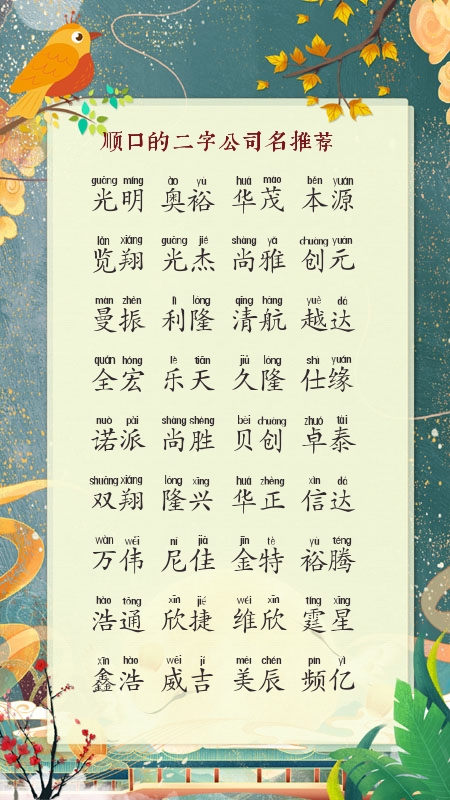 顺口的二字公司名推荐
guāng míng ào yù huá mào běn yuán
光明 奥裕 华茂 本源
lǎn xiáng guāng jié shàng yǎ chuàng yuán
览翔 光杰 尚雅 创元
màn zhèn lì lóng qīng háng yuè dá
曼振 利隆 清航 越达
quán hóng lè tiān jiǔ lóng shì yuán
全宏 乐天 久隆 仕缘
nuò pài shàng shèng bèi chuàng zhuó tài
诺派 尚胜 贝创 卓泰
shuāng xiáng lóng xīng huá zhèng xìn dá
双翔 隆兴 华正 信达
wàn wěi ní jiā jīn tè yù téng
万伟 尼佳 金特 裕腾
hào tōng xīn jié wéi xīn tíng xīng
浩通 欣捷 维欣 霆星
xīn hào wēi jí měi chén pín yì
鑫浩 威吉 美辰 频亿